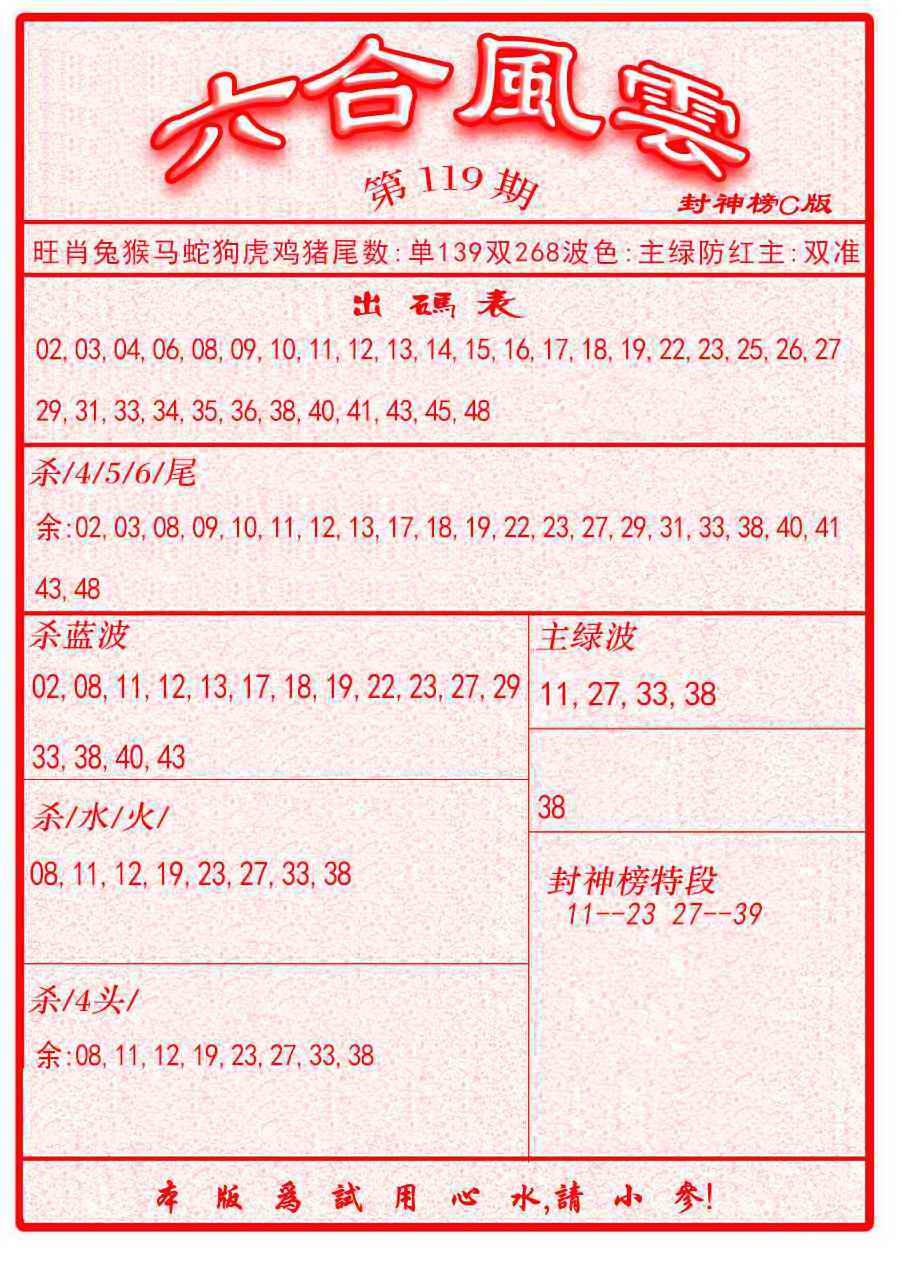 六合風雲
第119期
封神榜C版
旺肖兔猴马蛇狗虎鸡猪尾数:单139双268波色:主绿防红主:双准
出碼表
02,03,04,06,08,09,10,11,12,13,14,15,16,17,18,19,22,23,25,26,27
29,31,33,34,35,36,38,40,41,43,45,48
杀/4/5/6/尾
余:02,03,08,09,10,11,12,13,17,18,19,22,23,27,29,31,33,38,40,41
43,48
杀蓝波
02,08,11,12,13,17,18,19,22,23,27,29
33,38,40,43
主绿波
11,27,33,38
38
杀/水/火/
08,11,12,19,23,27,33,38
封神榜特段
11--23 27--39
杀/4头/
余:08,11,12,19,23,27,33,38
本版爲試用心水,請小参!